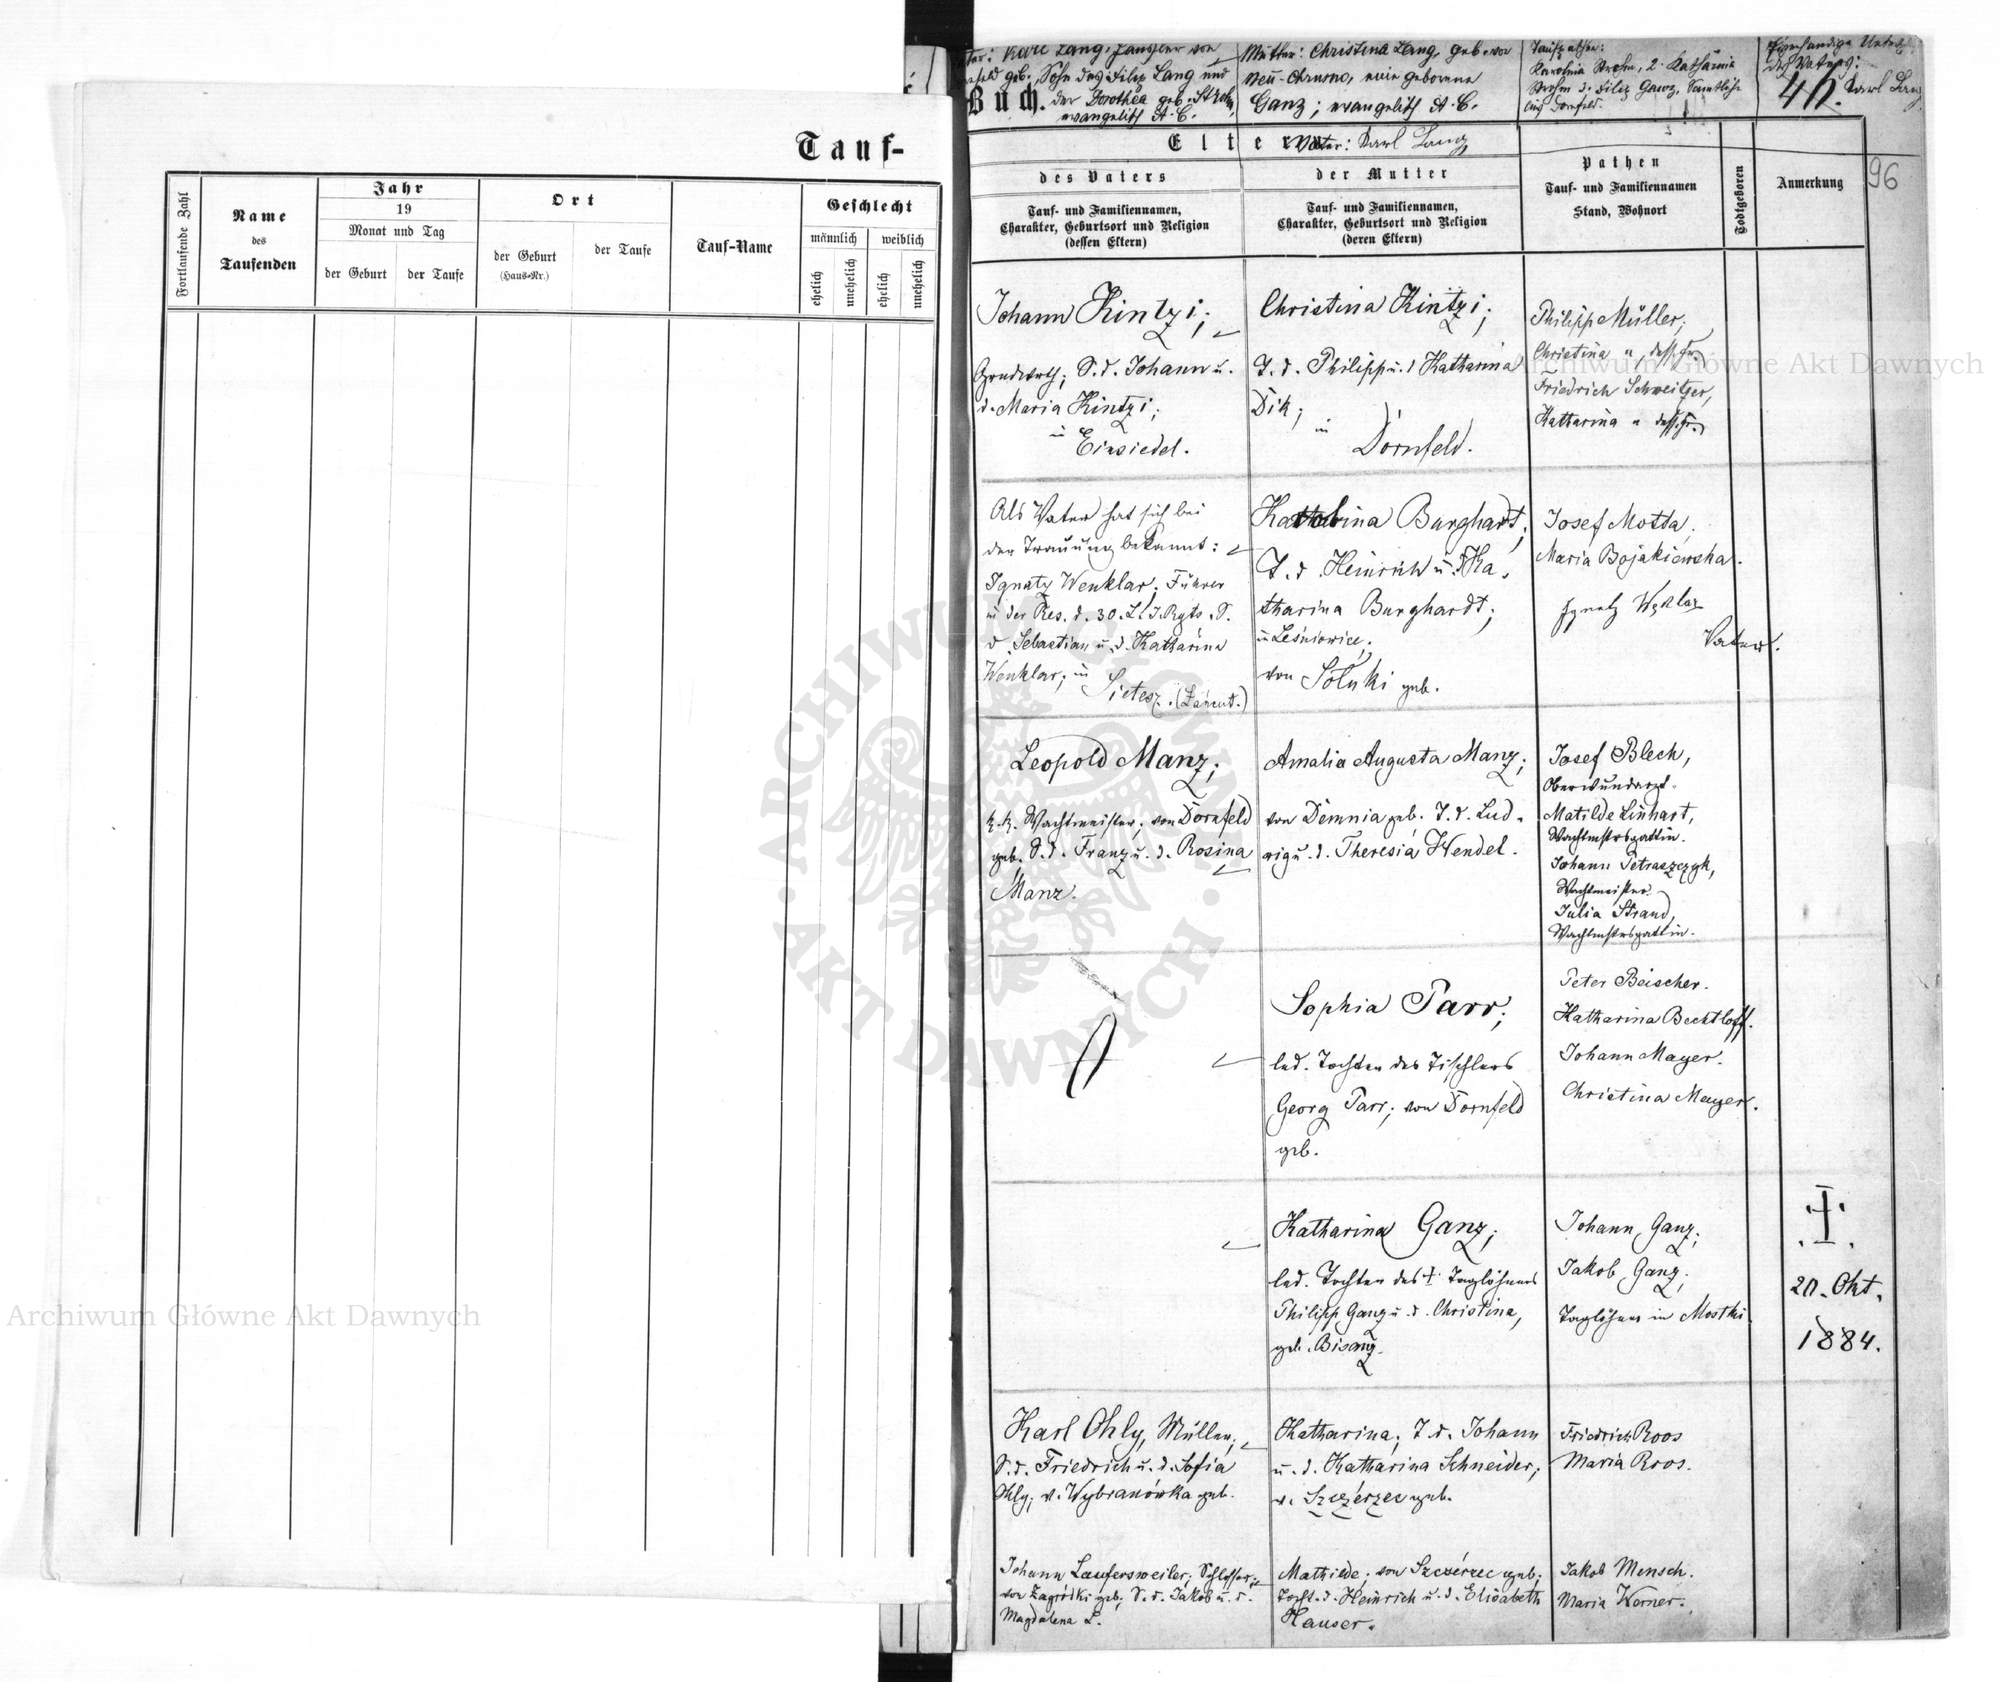 Tauf-
Fortlaufende Zahl
Name
des
Taufenden
Jahr
19
Monat und Tag
der Geburt
der Taufe
Ort
der Geburt
(Haus-Nr.)
der Taufe
Tauf-Name
Geschlecht
männlich
weiblich
ehelich
unehelich
ehelich
unehelich
Karl Lang,
geb. Sohn des Filip Lang und
der Dorothea geb. Strohm
evangelisch A. C.
Mutter: Christina Lang, geb. von
Neu-Chrusno, eine geborene
Ganz; evangelisch A. C.
Taufpathen:
Karolina Strohm, 2. Katharina
Strohm 3. Filip Ganz, Sämtliche
aus Dornfeld.
Eigenhändige
des Vaters:
Karl Lang
Buch.
46.
96
Eltern
Vater: Karl Lang
des Vaters
Tauf- und Familiennamen,
Charakter, Geburtsort und Religion
(dessen Eltern)
der Mutter
Tauf- und Familiennamen,
Charakter, Geburtsort und Religion
(deren Eltern)
Pathen
Tauf- und Familiennamen
Stand, Wohnort
Todtgeboren
Anmerkung
Johann Kintzi;
Grundwirth; S. d. Johann u.
d. Maria Kintzi;
in
Einsiedel.
Christina Kintzi;
T. d. Philipp u. d. Katharina
Dik;
in
Dornfeld.
Philipp Müller;
Christina u. dess. Fr.
Friedrich Schweitzer,
Katharina u. dess. Fr.
Als Vater hat sich bei
der Trauung bekannt:
Ignatz Wenklar, Führer
in der Res. d. 30. L. I. Rgts. S.
d. Sebastian u. d. Katharina
Wenklar; in
Sietesz. (Łańcut.)
Katharina Burghardt;
T. d. Heinrich u. d. Ka-
tharina Burghardt;
in Leśniowice;
von Soluki geb.
Josef Motta,
Maria Bojakiewska.
Ignatz
Vater.
Leopold Manz;
k. k. Wachtmeister; von Dornfeld
geb. S. d. Franz u. d. Rosina
Manz.
Amalia Augusta Manz;
von Demnia geb. T. d. Lud-
wig u. d. Theresia Hendel.
Josef Blech,
Oberwundarzt.
Matilde Linhart,
Wachtmstrsgattin.
Johann Petraszczyk,
Wachtmeister.
Julia Strand,
Wachtmstrsgattin.
Sophia Parr;
led. Tochter des Tischlers
Georg Parr; von Dornfeld
geb.
Peter Beischer.
Katharina Bechtloff.
Johann Mayer.
Christina Mayer.
Katharina Ganz;
led. Tochter des † Taglöhners
Philipp Ganz u. d. Christina,
geb. Bisanz.
Johann Ganz;
Jakob Ganz;
Taglöhner in Mostki.
20. Okt.
1884.
Karl Ohly, Müller;
S. d. Friedrich u. d. Sofia
Ohly; v. Wybranówka geb.
Katharina; T. d. Johann
u. d. Katharina Schneider;
v. Szczerzec geb.
Friedrich Roos
Maria Roos.
Johann Laufersweiler; Schlosser;
von Zagródki geb; S. d. Jakob u. d.
Magdalena L.
Mathilde; von Szczérzec geb;
Tocht. d. Heinrich u. d. Elisabeth
Hauser.
Jakob Mensch.
Maria Werner.
Archiwum Główne Akt Dawnych
Archiwum Główne Akt Dawnych
ARCHIWUM GŁÓWNE
AKT DAWNYCH